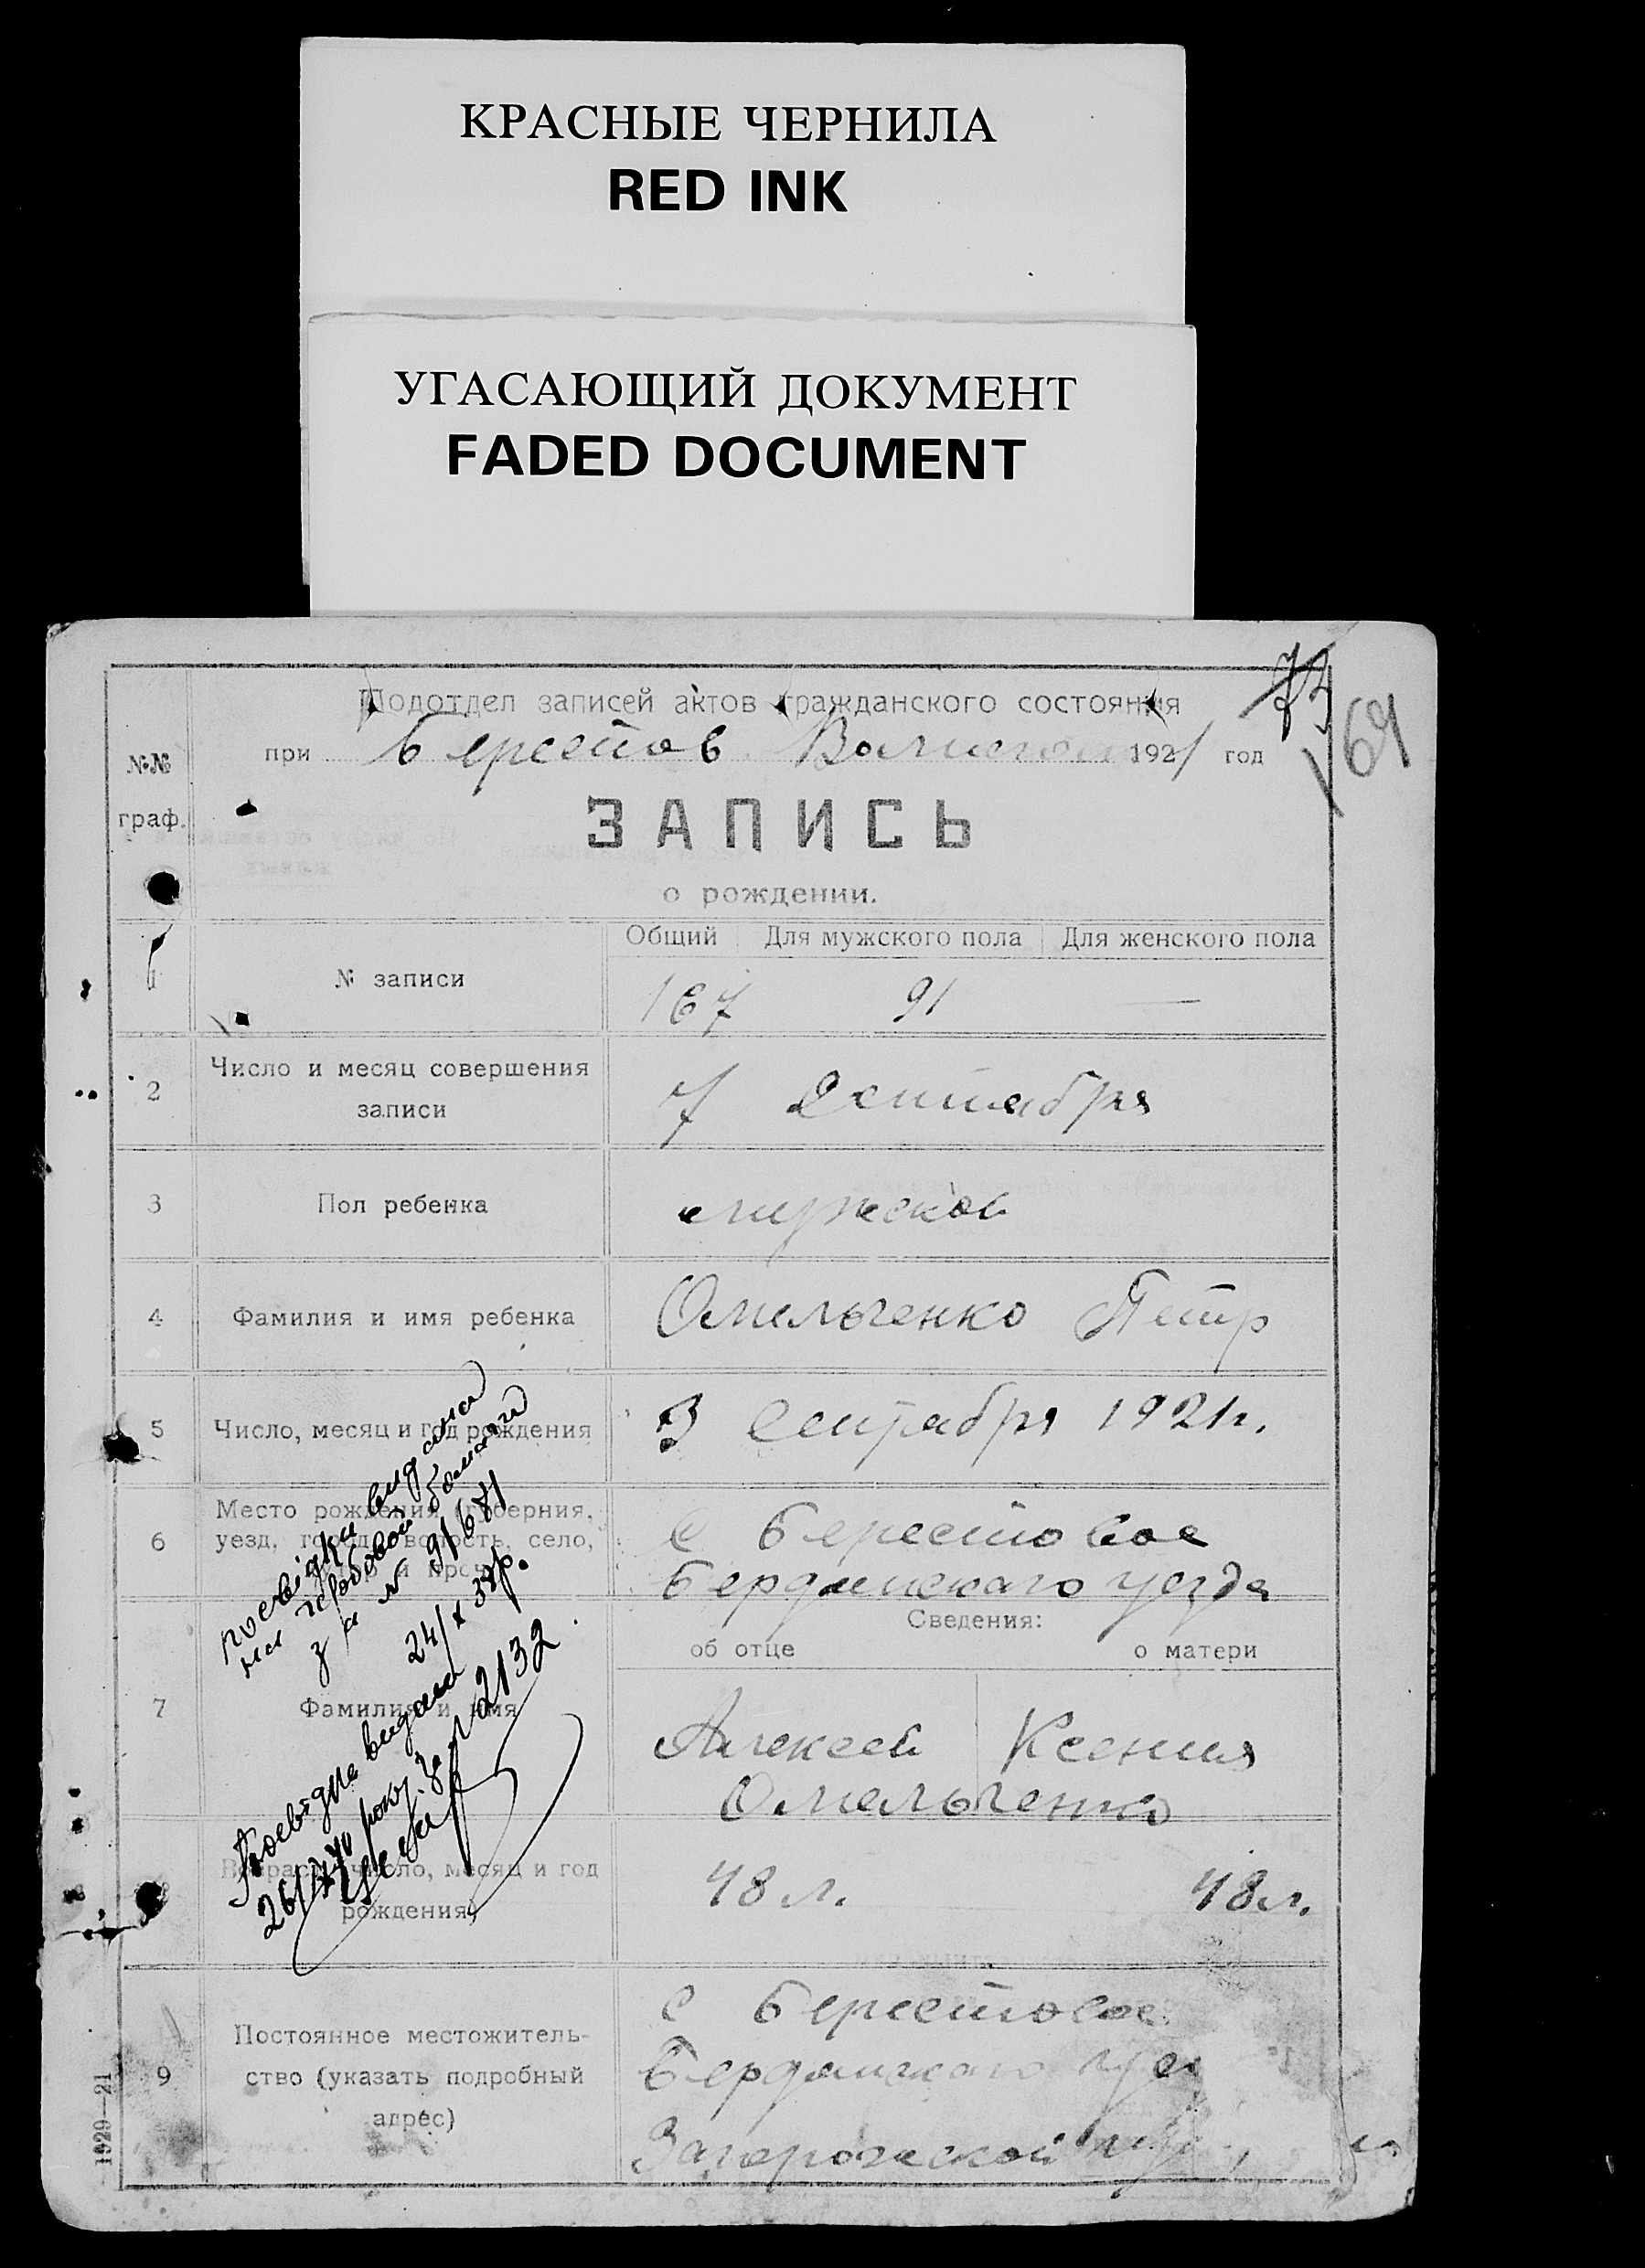 КРАСНЫЕ ЧЕРНИЛА
RED INK
УГАСАЮЩИЙ ДОКУМЕНТ
FADED DOCUMENT
73
69
Подотдел записей актов гражданского состояния
при Берестов. 1921 год
№№
граф.
ЗАПИСЬ
о рождении.
Общий Для мужского пола Для женского пола
1 № записи 167 91 —
2 Число и месяц совершения
записи
7 Сентября
3 Пол ребенка мужской
4 Фамилия и имя ребенка Омельченко Петр
5 Число, месяц и год рождения 3 Сентября 1921 г.
6 Место рождения (губерния,
уезд, город, волость, село,
с Берестовое
Бердянскаго уезда
Сведения:
об отце о матери
7 Фамилия и имя
Алексей Ксения
Омельченко
Возраст (число, месяц и год
рождения)
48 л. 48 л.
9 Постоянное местожитель-
ство (указать подробный
адрес)
с Берестовое
Бердянскаго
Запорожской
видана
на гербовой
за № 91/681
24/X 38р.
видана
року за № 2132
1029—21